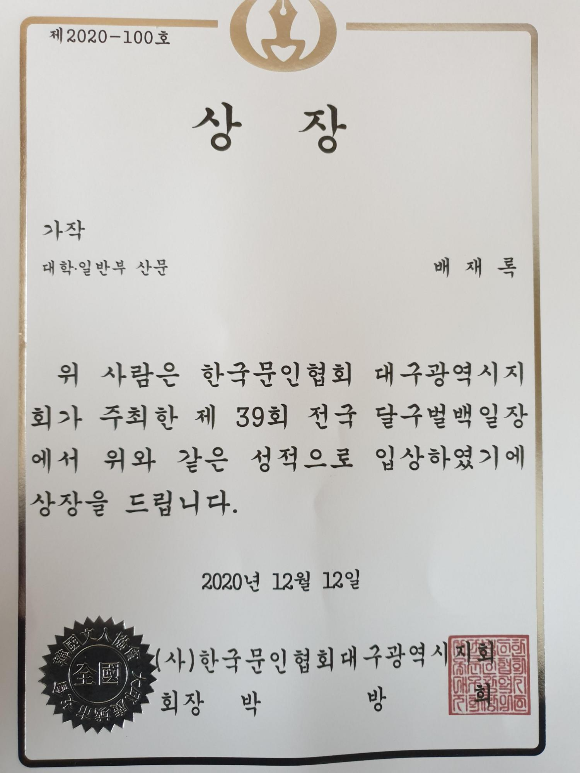 제2020-100호
상 장
가작
대학·일반부 산문 배 재 록
위 사람은 한국문인협회 대구광역시지
회가 주최한 제 39회 전국 달구벌백일장
에서 위와 같은 성적으로 입상하였기에
상장을 드립니다.
2020년 12월 12일
(사)한국문인협회대구광역시지회
회장 박 방 희
全國